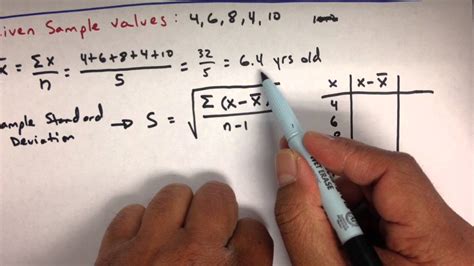 iven Sample Values: 4, 6, 8, 4, 10
x̄ = Σx/n = (4+6+8+4+10)/5 = 32/5 = 6.4 yrs old
ample Standard Deviation → S = √(Σ(x-x̄)/(n-1))
x | x-x̄
4
6
WET ERASE